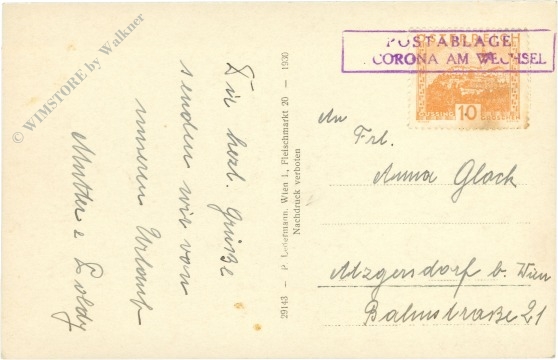 © WIMSTORE by Walkner
Dir herzl. Grüße
senden wir von
unseren Urlaub
Mutter & Poldy
29143 – P. Ledermann, Wien I., Fleischmarkt 20 – 1930
Nachdruck verboten
POSTABLAGE
CORONA AM WECHSEL
ÖSTERREICH
10
An
Frl.
Anna Glock
Atzgersdorf b. Wien
Bahnstraße 21